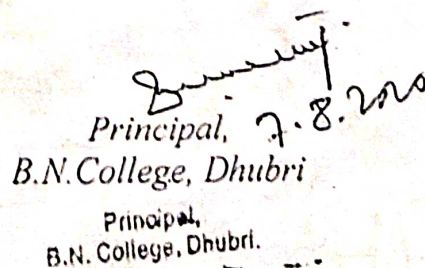 Principal, 7.8.2020
B.N.College, Dhubri
Principal,
B.N. College, Dhubri.